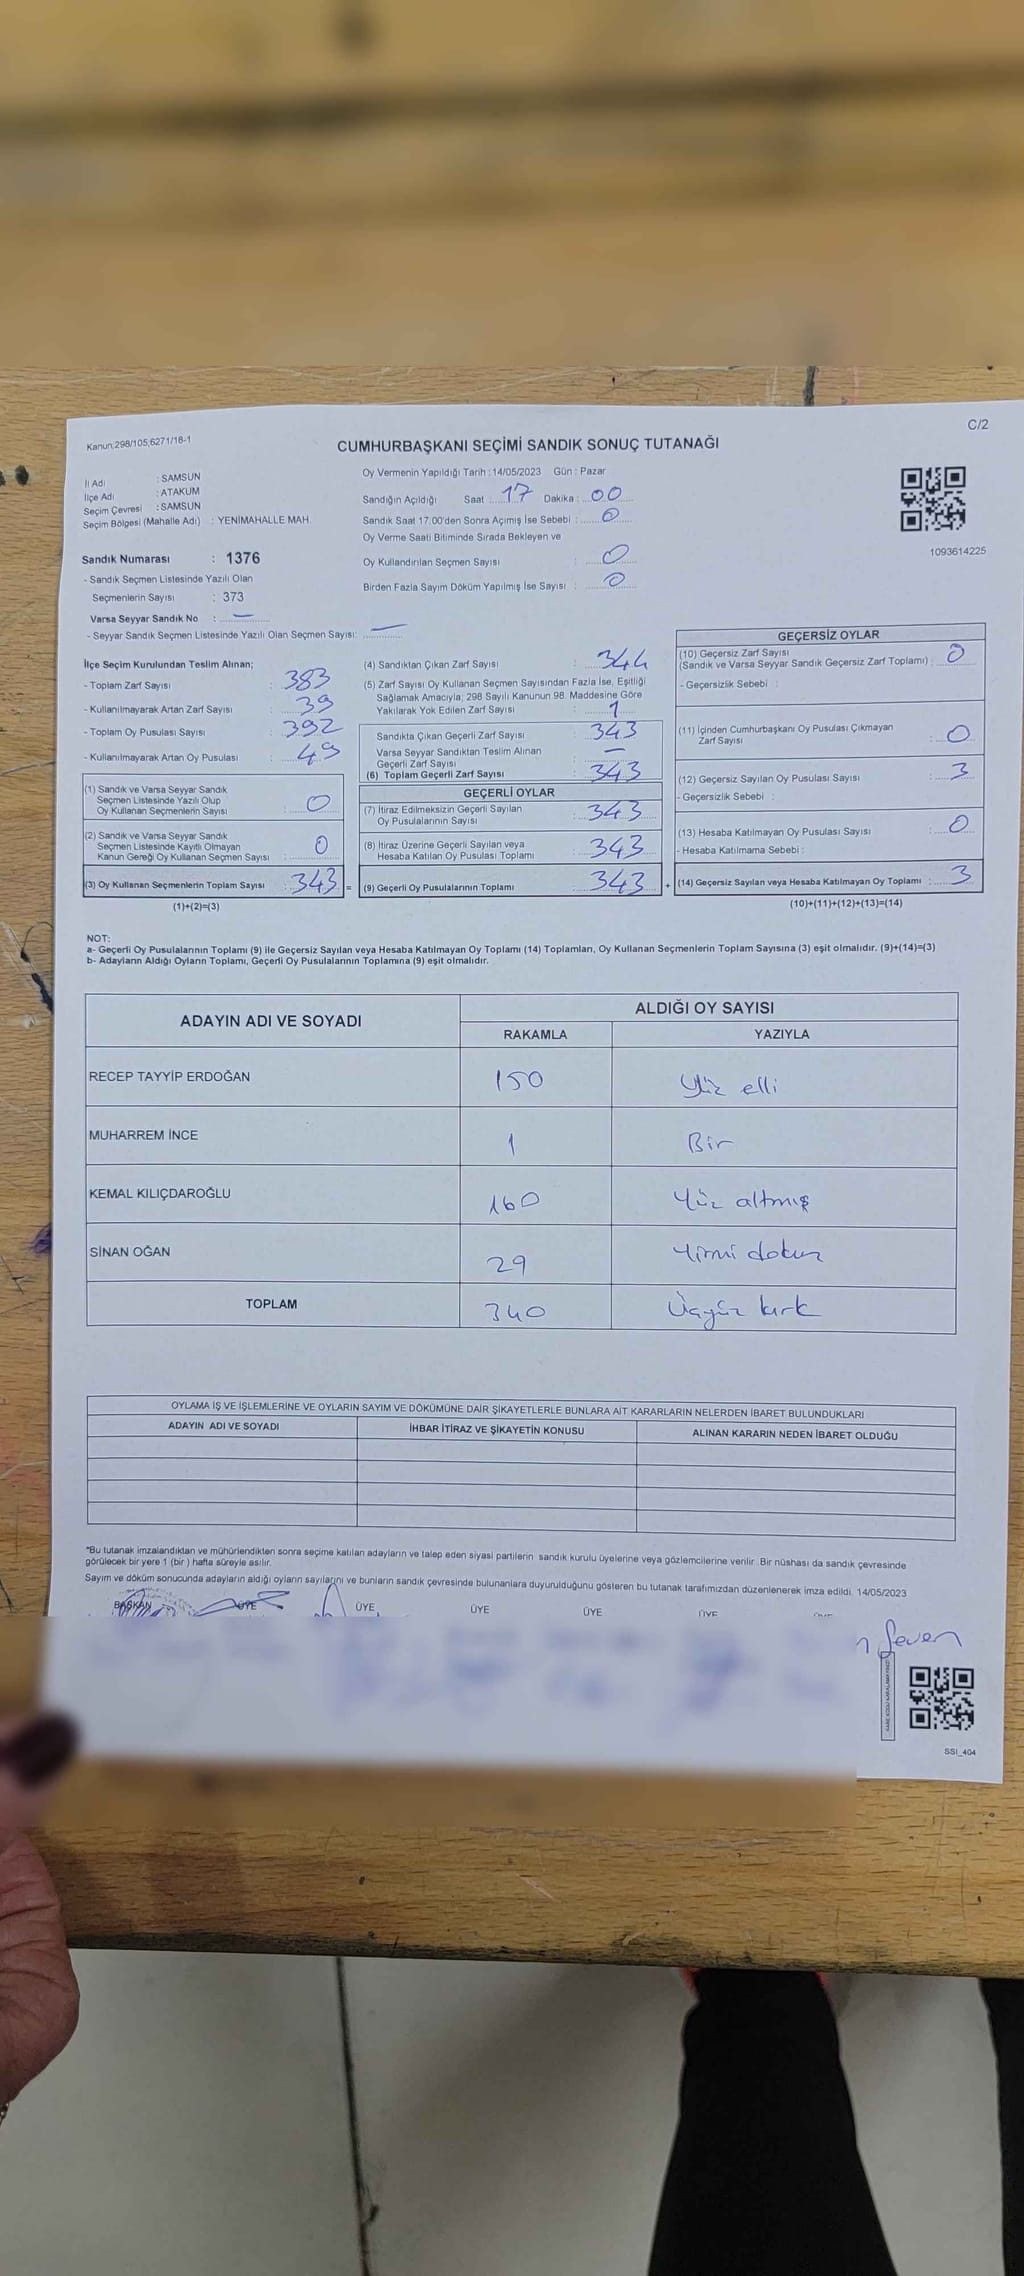 Kanun:298/105,6271/18-1
C/2
CUMHURBAŞKANI SEÇİMİ SANDIK SONUÇ TUTANAĞI
İl Adı : SAMSUN
İlçe Adı : ATAKUM
Seçim Çevresi : SAMSUN
Seçim Bölgesi (Mahalle Adı) : YENİMAHALLE MAH.
Oy Vermenin Yapıldığı Tarih : 14/05/2023 Gün : Pazar
Sandığın Açıldığı Saat : 17 Dakika : 00
Sandık Saat 17.00'den Sonra Açımış İse Sebebi : 0
Oy Verme Saati Bitiminde Sırada Bekleyen ve
Oy Kullandırılan Seçmen Sayısı : 0
Birden Fazla Sayım Döküm Yapılmış İse Sayısı : 0
1093614225
Sandık Numarası : 1376
- Sandık Seçmen Listesinde Yazılı Olan
Seçmenlerin Sayısı : 373
Varsa Seyyar Sandık No : —
- Seyyar Sandık Seçmen Listesinde Yazılı Olan Seçmen Sayısı: —
İlçe Seçim Kurulundan Teslim Alınan;
- Toplam Zarf Sayısı : 383
- Kullanılmayarak Artan Zarf Sayısı : 39
- Toplam Oy Pusulası Sayısı : 392
- Kullanılmayarak Artan Oy Pusulası : 49
(1) Sandık ve Varsa Seyyar Sandık
Seçmen Listesinde Yazılı Olup
Oy Kullanan Seçmenlerin Sayısı : 0
(2) Sandık ve Varsa Seyyar Sandık
Seçmen Listesinde Kayıtlı Olmayan
Kanun Gereği Oy Kullanan Seçmen Sayısı : 0
(3) Oy Kullanan Seçmenlerin Toplam Sayısı : 343 =
(1)+(2)=(3)
(4) Sandıktan Çıkan Zarf Sayısı : 344
(5) Zarf Sayısı Oy Kullanan Seçmen Sayısından Fazla İse, Eşitliği
Sağlamak Amacıyla; 298 Sayılı Kanunun 98. Maddesine Göre
Yakılarak Yok Edilen Zarf Sayısı : 1
Sandıkta Çıkan Geçerli Zarf Sayısı : 343
Varsa Seyyar Sandıktan Teslim Alınan
Geçerli Zarf Sayısı : —
(6) Toplam Geçerli Zarf Sayısı : 343
GEÇERLİ OYLAR
(7) İtiraz Edilmeksizin Geçerli Sayılan
Oy Pusulalarının Sayısı : 343
(8) İtiraz Üzerine Geçerli Sayılan veya
Hesaba Katılan Oy Pusulası Toplamı : 343
(9) Geçerli Oy Pusulalarının Toplamı : 343 +
GEÇERSİZ OYLAR
(10) Geçersiz Zarf Sayısı
(Sandık ve Varsa Seyyar Sandık Geçersiz Zarf Toplamı) : 0
- Geçersizlik Sebebi :
(11) İçinden Cumhurbaşkanı Oy Pusulası Çıkmayan
Zarf Sayısı : 0
(12) Geçersiz Sayılan Oy Pusulası Sayısı : 3
- Geçersizlik Sebebi :
(13) Hesaba Katılmayan Oy Pusulası Sayısı : 0
- Hesaba Katılmama Sebebi :
(14) Geçersiz Sayılan veya Hesaba Katılmayan Oy Toplamı : 3
(10)+(11)+(12)+(13)=(14)
NOT:
a- Geçerli Oy Pusulalarının Toplamı (9) ile Geçersiz Sayılan veya Hesaba Katılmayan Oy Toplamı (14) Toplamları, Oy Kullanan Seçmenlerin Toplam Sayısına (3) eşit olmalıdır. (9)+(14)=(3)
b- Adayların Aldığı Oyların Toplamı, Geçerli Oy Pusulalarının Toplamına (9) eşit olmalıdır.
ADAYIN ADI VE SOYADI
ALDIĞI OY SAYISI
RAKAMLA YAZIYLA
RECEP TAYYİP ERDOĞAN 150 Yüz elli
MUHARREM İNCE 1 Bir
KEMAL KILIÇDAROĞLU 160 Yüz altmış
SİNAN OĞAN 29 Yirmi dokuz
TOPLAM 340 Üçyüz kırk
OYLAMA İŞ VE İŞLEMLERİNE VE OYLARIN SAYIM VE DÖKÜMÜNE DAİR ŞİKAYETLERLE BUNLARA AİT KARARLARIN NELERDEN İBARET BULUNDUKLARI
ADAYIN ADI VE SOYADI İHBAR İTİRAZ VE ŞİKAYETİN KONUSU ALINAN KARARIN NEDEN İBARET OLDUĞU
*Bu tutanak imzalandıktan ve mühürlendikten sonra seçime katılan adayların ve talep eden siyasi partilerin sandık kurulu üyelerine veya gözlemcilerine verilir. Bir nüshası da sandık çevresinde
görülecek bir yere 1 (bir) hafta süreyle asılır.
Sayım ve döküm sonucunda adayların aldığı oyların sayılarını ve bunların sandık çevresinde bulunanlara duyurulduğunu gösteren bu tutanak tarafımızdan düzenlenerek imza edildi. 14/05/2023
BAŞKAN ÜYE ÜYE ÜYE ÜYE ÜYE
Seven
SSI_404